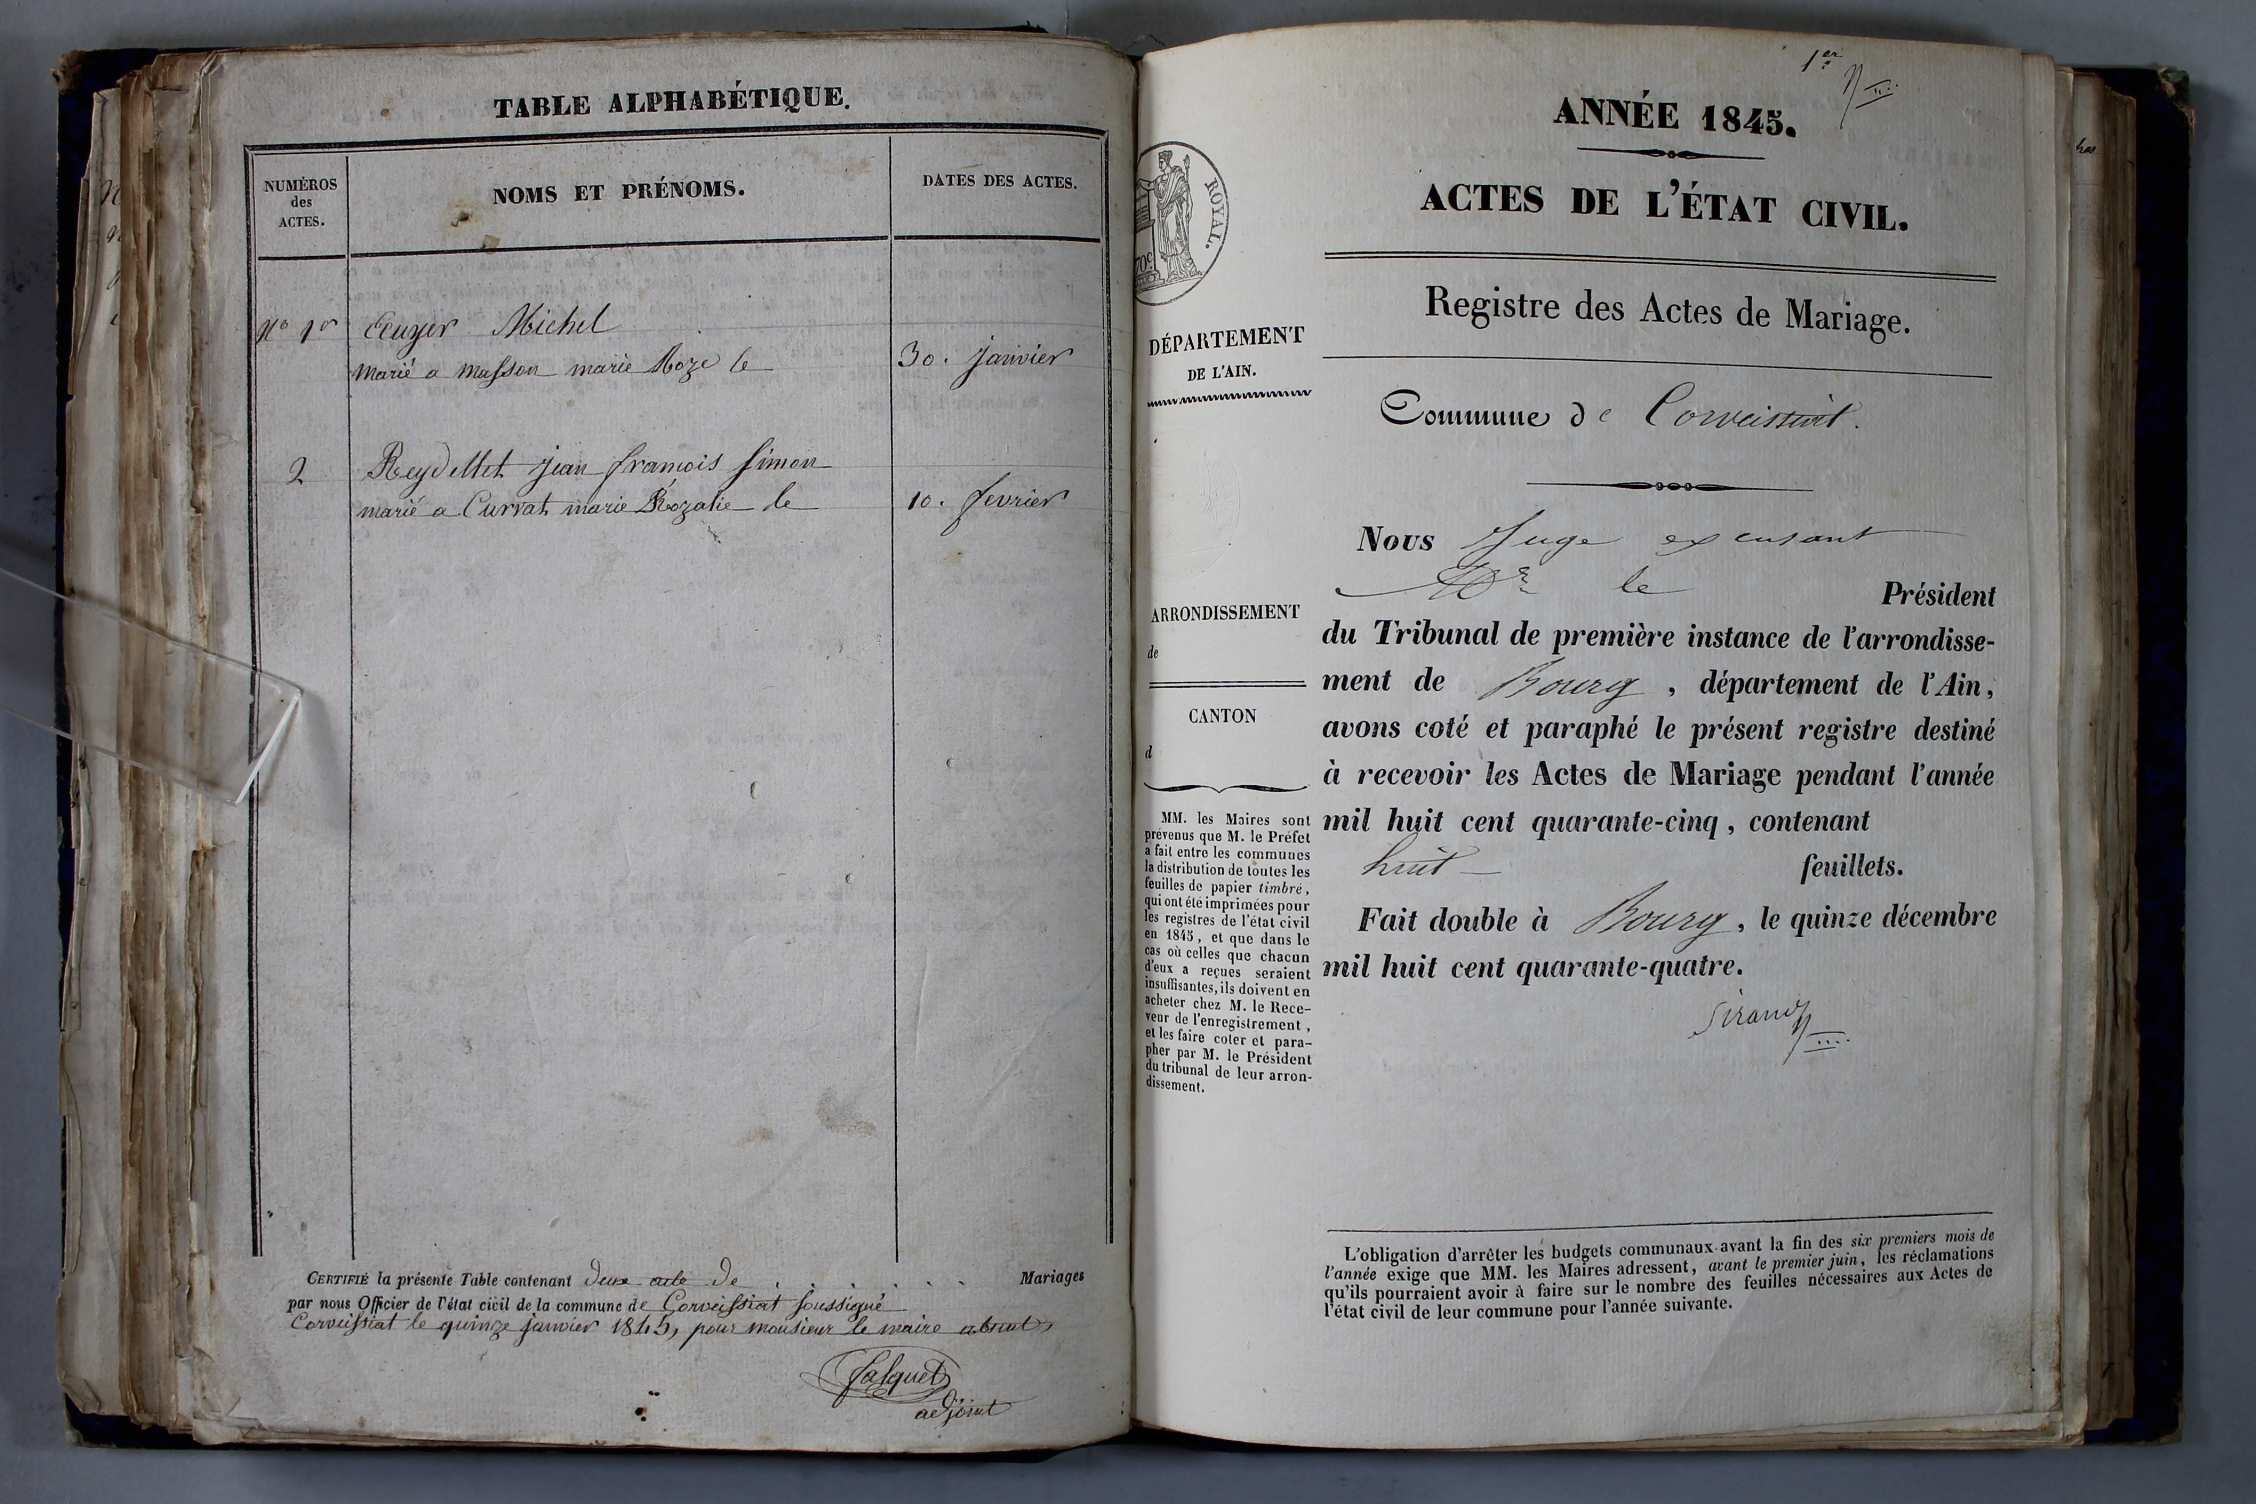 TABLE ALPHABÉTIQUE.
NUMÉROS
des
ACTES.
NOMS ET PRÉNOMS.
DATES DES ACTES.
No 1er Ecuyer Michel
marié a masson marie Roze le 30. janvier
2 Reydellet jean francois simon
marié a Curvat marie Rozalie le 10. fevrier
CERTIFIÉ la présente Table contenant deux acte de Mariages
par nous Officier de l'état civil de la commune de Corveissiat soussigné
Corveissiat le quinze janvier 1845, pour monsieur le maire absent,
falquet
adjoint
1er
ANNÉE 1845.
ACTES DE L'ÉTAT CIVIL.
ROYAL.
70c
Registre des Actes de Mariage.
DÉPARTEMENT
DE L'AIN.
Commune de Corveissiat.
ARRONDISSEMENT
de
CANTON
d
MM. les Maires sont
prévenus que M. le Préfet
a fait entre les communes
la distribution de toutes les
feuilles de papier timbré,
qui ont été imprimées pour
les registres de l'état civil
en 1845, et que dans le
cas où celles que chacun
d'eux a reçues seraient
insuffisantes, ils doivent en
acheter chez M. le Rece-
veur de l'enregistrement,
et les faire coter et para-
pher par M. le Président
du tribunal de leur arron-
dissement.
Nous Juge excusant
Mr le Président
du Tribunal de première instance de l'arrondisse-
ment de Bourg, département de l'Ain,
avons coté et paraphé le présent registre destiné
à recevoir les Actes de Mariage pendant l'année
mil huit cent quarante-cinq, contenant
huit feuillets.
Fait double à Bourg, le quinze décembre
mil huit cent quarante-quatre.
Sirand
L'obligation d'arrêter les budgets communaux avant la fin des six premiers mois de
l'année exige que MM. les Maires adressent, avant le premier juin, les réclamations
qu'ils pourraient avoir à faire sur le nombre des feuilles nécessaires aux Actes de
l'état civil de leur commune pour l'année suivante.